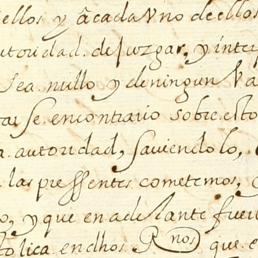 ellos y â cada vno de ellos
utoridad de Juzgar, y inter
sea nullo y de ningun va
tar se en contrario sobre esto
a autoridad, saviendolo,
las pressentes cometemos,
o, y que en adelante fuer
tolica en dhos Rnos que e